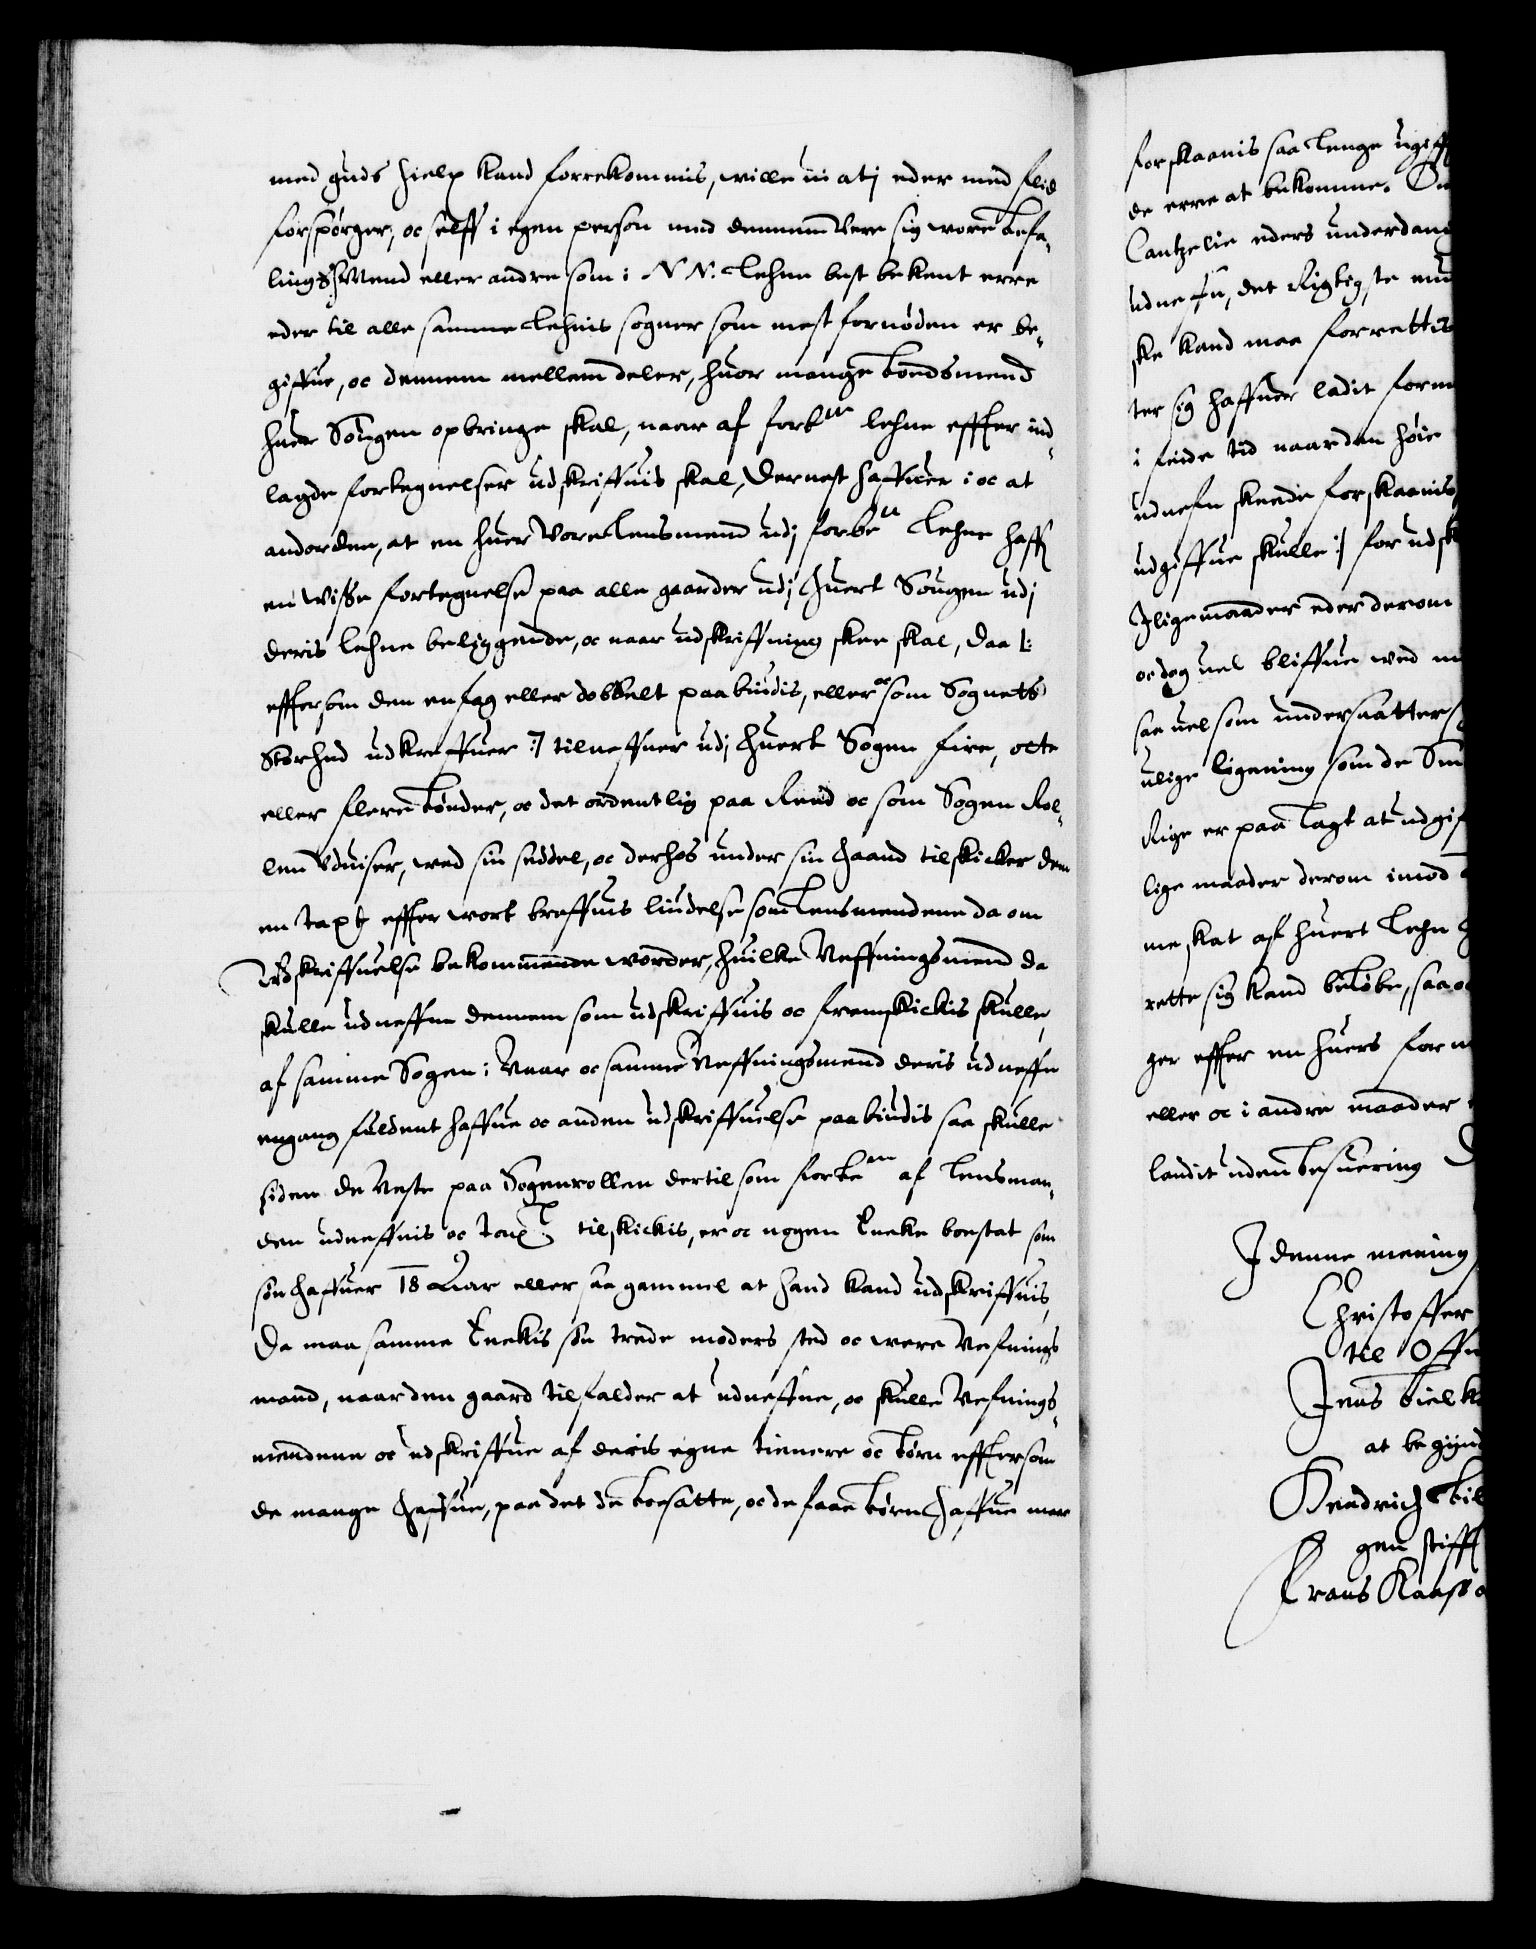 med guds hielp kand forrekommis, wille wi at i eder med flid
forspørger, oc self i egen person med dennem Vere sig wore befa¬
lings Mend eller andre som i N N. Lehne best bekent erre
eder til alle samme Lehnis sogner som mest fornøden er be¬
giffue, oc dennem mellem deler, huor mange bondsmend
huer Sougen opbringe skal, naar af forbne lehne effter ind¬
lagde fortegnelser udskriffuis skal, Dernest haffuer i oc at
andorden, at en huer Vore Lensmend udj forbete Lehne haffr
en wisse fortegnelse paa alle gaarder udj huert Sougen udj
deris lehne beliggende, oc naar udskriffning skee skal, daa |:
effersom den enfag eller dobbelt paabiudis, eller oc som Sognets
Storhed udkreffuer :| tilneffner udj huert Sogen fire, otte
eller flere bønder, oc det ordentlig paa Reed oc som Sogen Rol¬
len Vduiser, wed sin seddel, oc derhos under sin haand tilskicker dem
en taxt effter wort breffuis liudelse som Lensmendene da om
Udskriffuelse bekommende worder, huilke Neffningsmend da
skulle udneffne dennem som udskriffuis oc fremskickis skulle,
af samme Sogen: Naar oc samme Neffningsmend deris udneffn
engang fuldent haffue oc anden udskriffuelse paabiudis saa skulle
siden de Neste paa Sogenrollen dertil som forbeen af Lensman¬
den udneffnis oc taxt tilskickis, er oc nogen Encke boestat som
søn haffuer 18 Aar eller saa gammel at hand kand udskriffuis,
Da maa samme Enckis søn trede moders sted oc were Nefnings
mand, naar den gaard tilfalder at udneffne, oc skulle Nefnings¬
mendene oc udskriffue af deris egne tienere oc børn effttersom
de mange haffue, paa det de boesatte, oc de faae børn haffue maa
forskaanis saa lenge ugiff
de erre at bekomme. 
Cantzelie eders underdan
udneffn, det Rigtigste mu
ske kand maa forrettis
ter sig haffuer ladit form
i feide tid naar den høie
udnefn skeede forskaanis,
udgiffue skulle :| for udsk
Jligemaader eder derom
oc dog uel bliffue wed
saa uel som undersaatter
ulige ligening som de
Rige er paa lagt at udgif
lige maader derom imod
me skat af huert Lehn
rette sig kand beløbe, saa
ger effter en huers form
eller oc i andre maader
landit uden besuering
J denne mening
Christoffer
til Offu
Jens Bielk
at begynd
Hendrich Bil
gen stifft
Frans Kaass